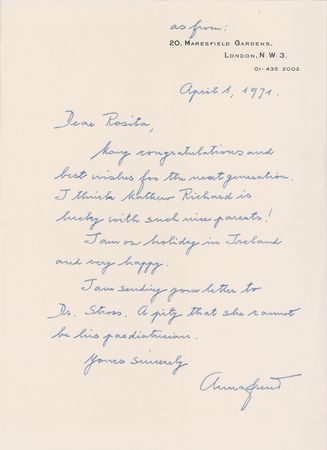 as from:
20, MARESFIELD GARDENS,
LONDON, N.W. 3.
01-435 2002.
April 1, 1971.
Dear Rosita,
Many congratulations and
best wishes for the next generation.
I think Mathew Richard is
lucky with such nice parents!
I am on holiday in Ireland
and very happy.
I am sending your letter to
Dr. Stross. A pity that she cannot
be his paediatrician.
Yours sincerely
Anna Freud